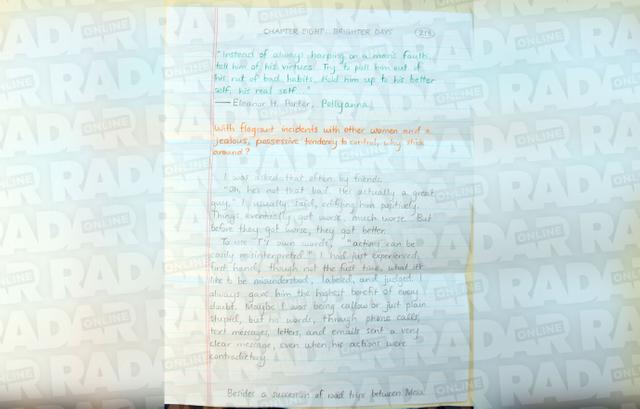 CHAPTER EIGHT: BRIGHTER DAYS 218
"Instead of always harping on a man's faults,
tell him of his virtues. Try to pull him out of
his rut of bad habits. Hold him up to his better
self, his real self..."
— Eleanor H. Porter, Pollyanna
With flagrant incidents with other women and a
jealous, possessive tendency to control, why stick
around?
I was asked that often by friends.
"Oh, he's not that bad. He's actually a great
guy," I usually said, edifying him positively.
Things eventually got worse, much worse. But
before they got worse, they got better.
To use TY own words, "actions can be
easily misinterpreted." I had just experienced,
first hand, though not the first time, what it's
like to be misunderstood, labeled, and judged.
always gave him the highest benefit of every
doubt. Maybe I was being callow or just plain
stupid, but his words, through phone calls,
text messages, letters, and emails sent a very
clear message, even when his actions were
contradictory.
Besides a succession of road trips between
RADAR ONLINE